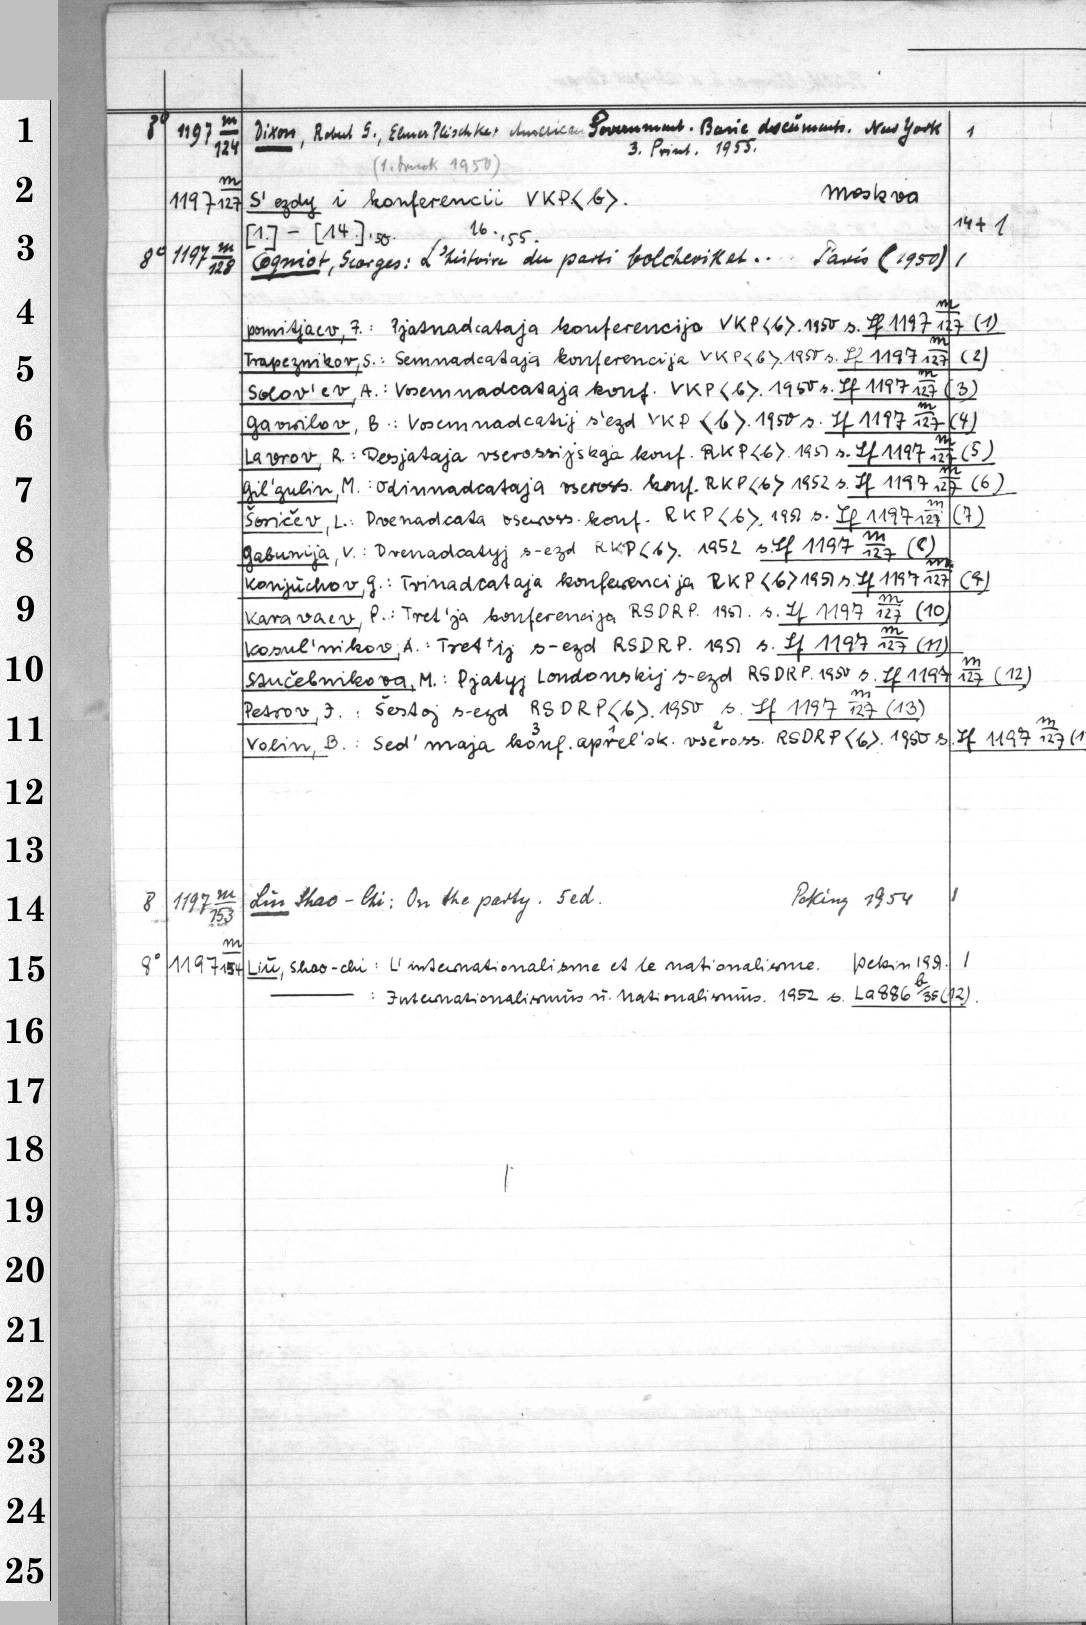 1 8° 1197 m/124 Dixon, Robert G., Elmer Plischke: American Government. Basic documents. New York 1
3. Print. 1955.
(1. druck 1950)
2 1197 m/127 S'ezdy i konferencii VKP<b>. Moskva
[1.] – [14.] '50. 16. '55. 14+1
3 8° 1197 m/128 Cogniot, Georges: L'histoire du parti bolcheviket.... Paris (1950) 1
4 pomitjaev, F.: Pjatnadcataja konferencija VKP<b>. 1950 s. If 1197 m/127 (1)
5 Trapeznikov, S.: Semnadcataja konferencija VKP<b>. 1950 s. If 1197 m/127 (2)
Solov'ev, A.: Vosemnadcataja konf. VKP<b>. 1950 s. If 1197 m/127 (3)
6 Gavrilov, B.: Vosemnadcatij s'ezd VKP<b>. 1950 s. If 1197 m/127 (4)
Lavrov, R.: Desjataja vserossijskaja konf. RKP<b>. 1951 s. If 1197 m/127 (5)
7 Gil'gulin, M.: Odinnadcataja vseross. konf. RKP<b> 1952 s. If 1197 m/127 (6)
Šoričev, L.: Dvenadcata vseross. konf. RKP<b>. 1951 s. If 1197 m/127 (7)
8 Gabunija, V.: Dvenadcatyj s-ezd RKP<b>. 1952 s. If 1197 m/127 (8)
Konjuchov, G.: Trinadcataja konferencija RKP<b> 1951 s. If 1197 m/127 (9)
9 Karavaev, P.: Tret'ja konferencija RSDRP. 1951. s. If 1197 m/127 (10)
Kosul'nikov, A.: Tret'ij s-ezd RSDRP. 1951 s. If 1197 m/127 (11)
10 Stučebnikova, M.: Pjatyj Londonskij s-ezd RSDRP. 1950 s. If 1197 m/127 (12)
Petrov, F.: Šestoj s-ezd RSDRP<b>. 1950 s. If 1197 m/127 (13)
11 Volin, B.: Sed'maja konf. aprel'sk. vseross. RSDRP<b>. 1950 s. If 1197 m/127 (1
3 1 2
12
13
14 8 1197 m/153 Liu Shao-Chi: On the party. 5 ed. Peking 1954 1
15 8° 1197 m/154 Liu, Shao-chi: L'internationalisme et le nationalisme. Pekin 1951. 1
——— : Internationalismus u. Nationalismus. 1952 s. La 886 b/35 (12).
16
17
18
19
20
21
22
23
24
25